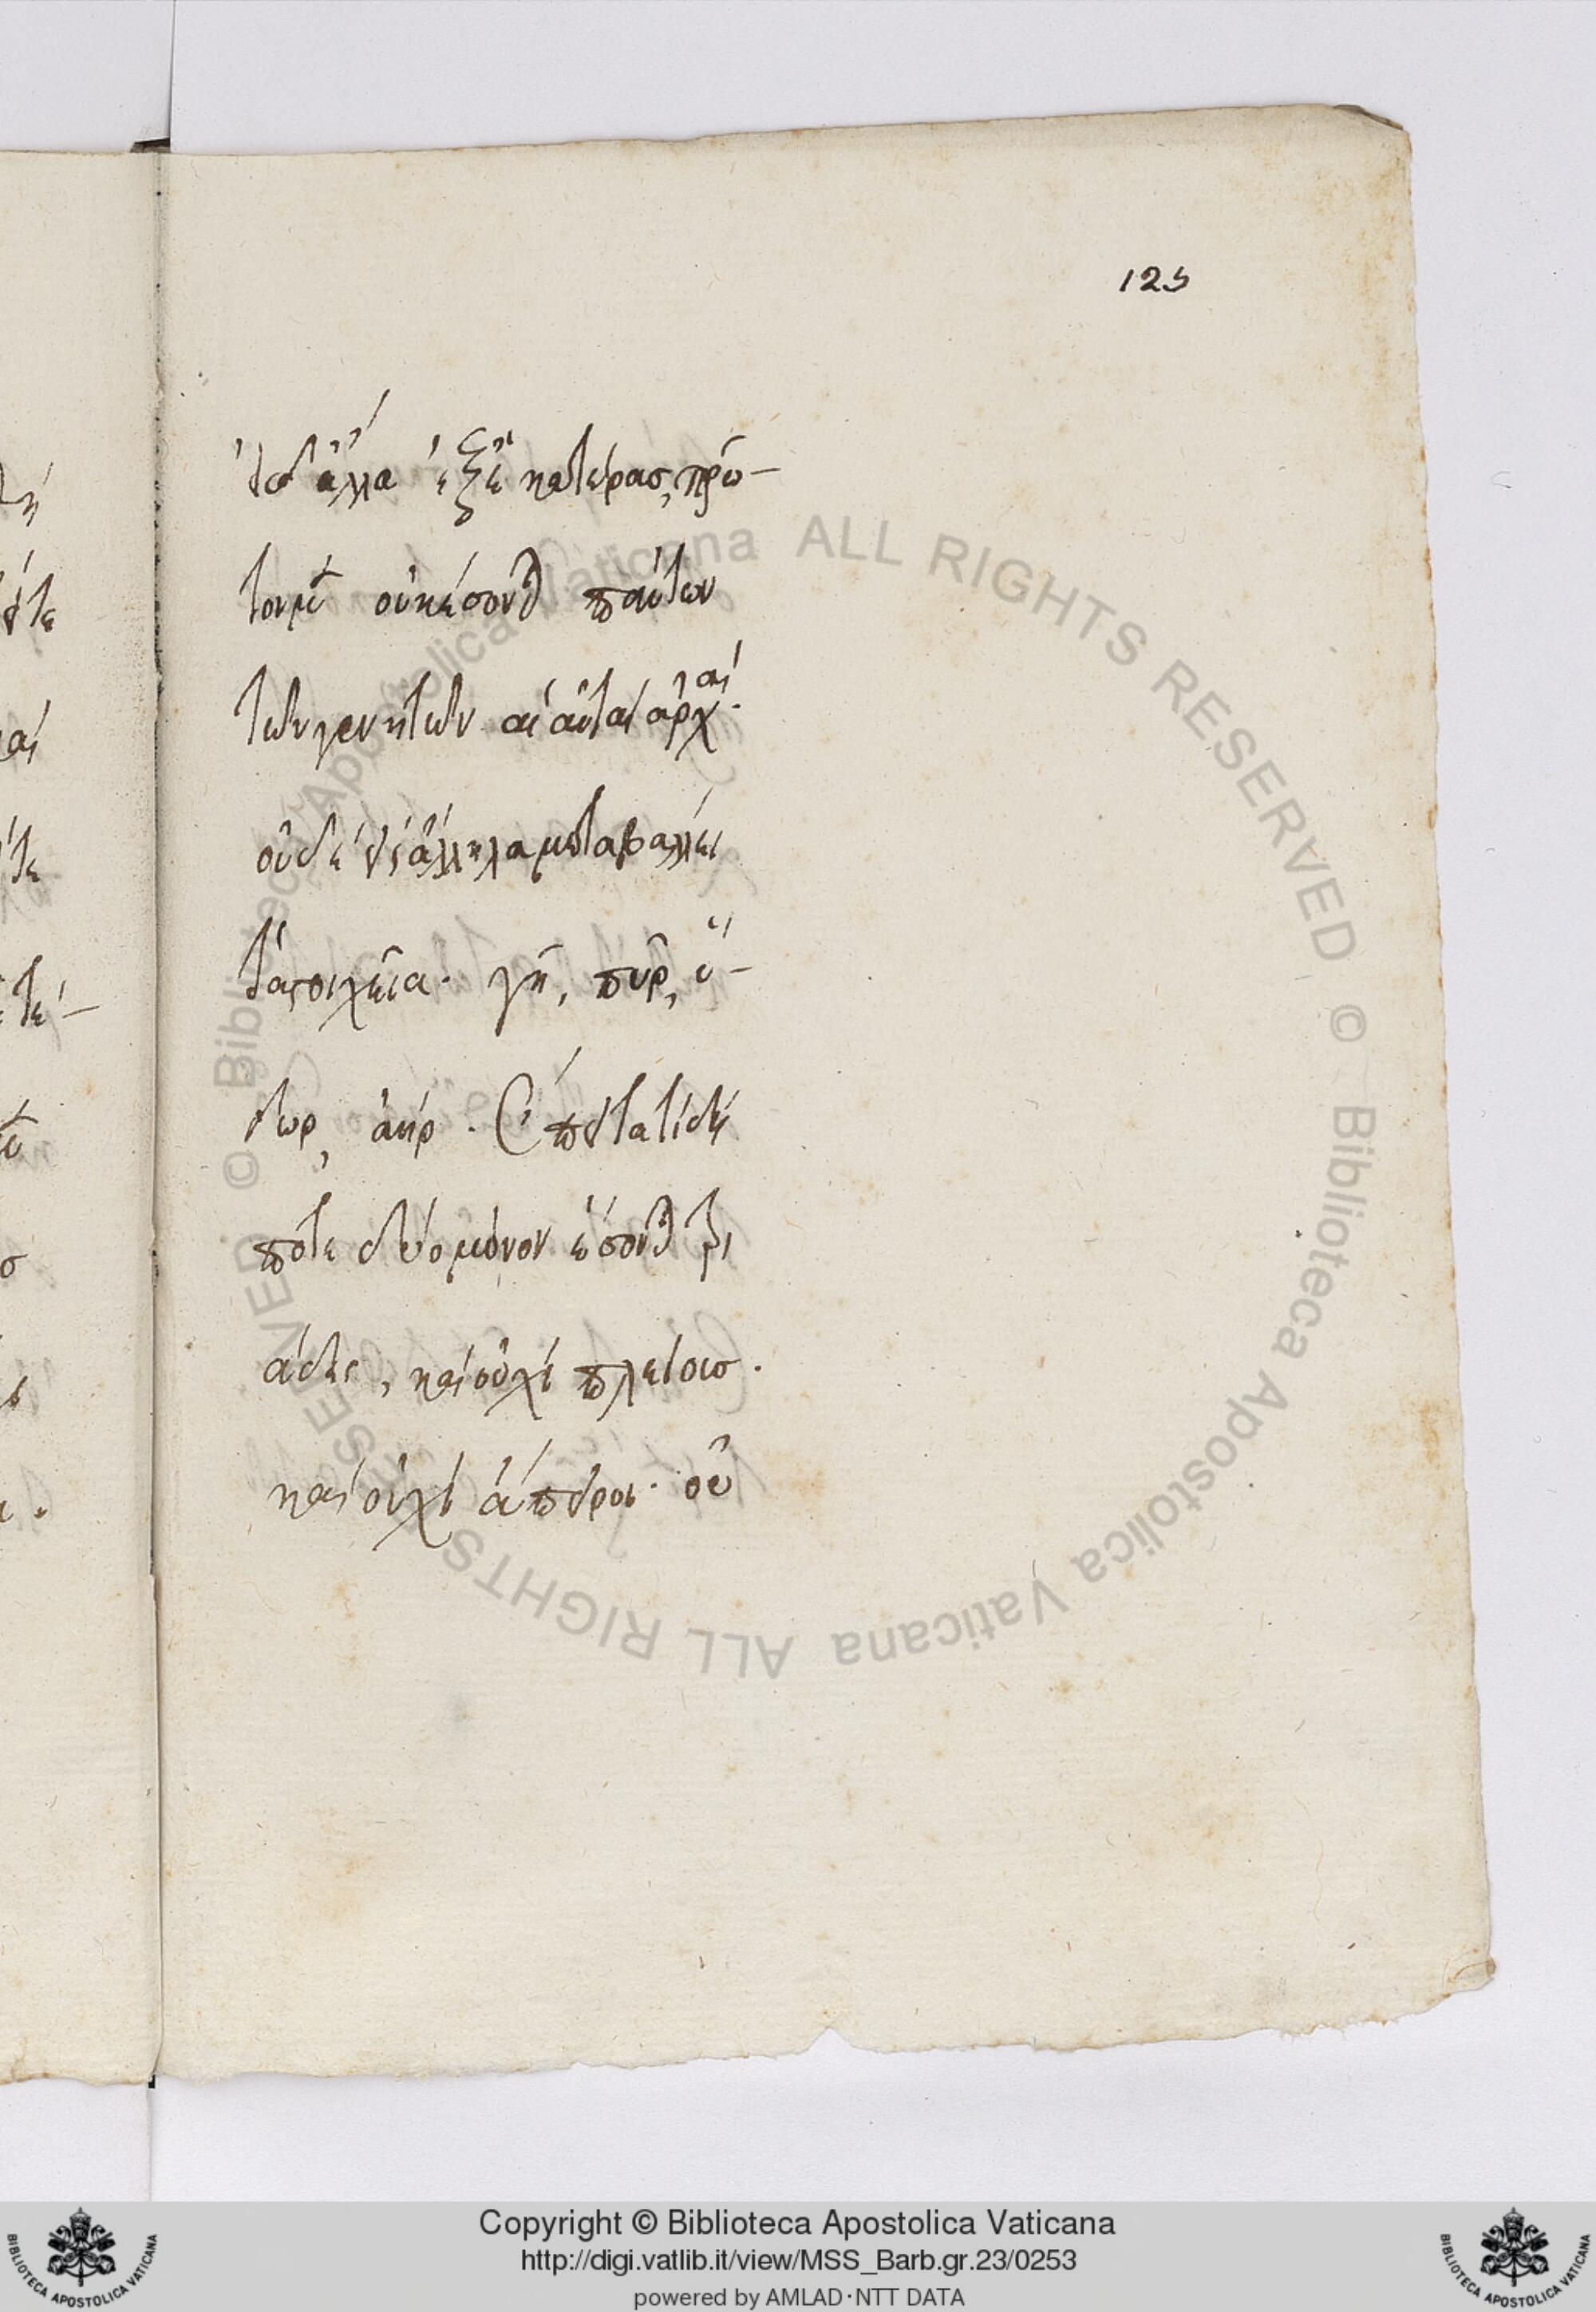 125
τὰ δ' ἄλλα ἐξ ἑκατέρας, πρῶ-
τον μὲν οὐκ ἔσονται πάντων
τῶν γενητῶν αἱ αὐταὶ ἀρχαί.
οὐδὲ εἰς ἄλληλα μεταβάλλει
τὰ στοιχεῖα. γῆ, πῦρ, ὕ-
δωρ, ἀήρ. ἔπειτα τί δή
ποτε δύο μόνον ἔσονται
, καὶ οὐχὶ πλείους.
καὶ οὐχὶ ἄπειροι. οὐ
© Biblioteca Apostolica Vaticana ALL RIGHTS RESERVED © Biblioteca Apostolica Vaticana ALL RIGHTS RESERVED
Copyright © Biblioteca Apostolica Vaticana
http://digi.vatlib.it/view/MSS_Barb.gr.23/0253
powered by AMLAD·NTT DATA
BIBLIOTECA APOSTOLICA VATICANA
BIBLIOTECA APOSTOLICA VATICANA